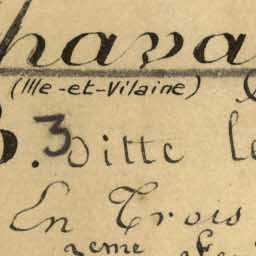 hava
(Ille-et-Vilaine)
3
Ditte le
En Trois
2eme